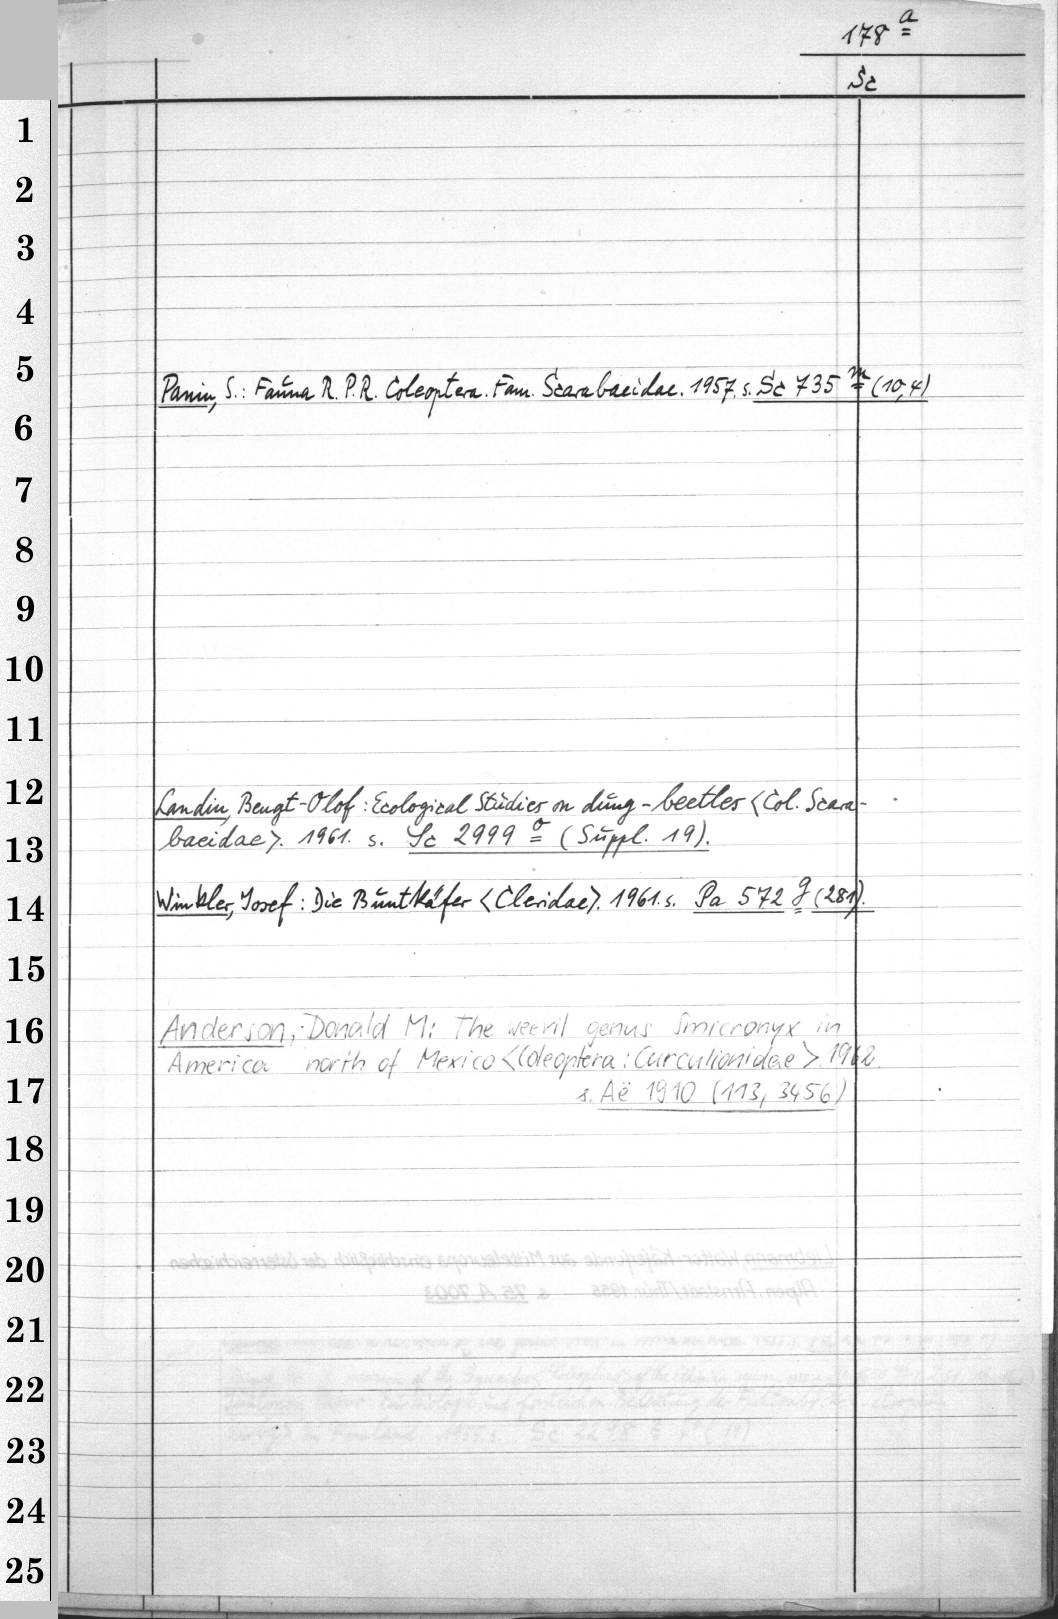 178 a
Sc
1
2
3
4
5
Panin, S.: Fauna R.P.R. Coleoptera. Fam. Scarabaeidae. 1957. s. Sc 735 m (10,4)
6
7
8
9
10
11
12
Landin, Bengt-Olof: Ecological Studies on dung-beetles <Col. Scara-
baeidae>. 1961. s. Sc 2999 o (Suppl. 19).
13
14
Winkler, Josef: Die Buntkäfer <Cleridae>. 1961. s. Pa 572 g (281).
15
16
Anderson, Donald M: The weevil genus Smicronyx in
America north of Mexico <Coleoptera: Curculionidae>. 1962.
17
s. Aë 1910 (113, 3456)
18
19
20
21
22
23
24
25